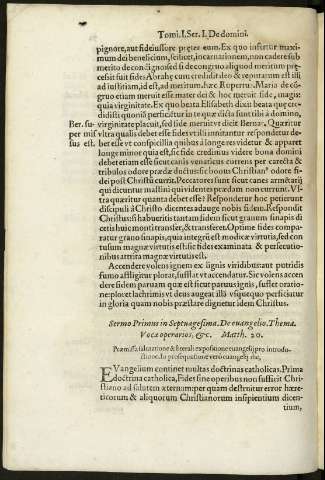 Tomi. I. Ser. I. De domini.
pignore, aut fideiussore præter eum. Ex quo infertur maxi-
mum dei beneficium, scilicet, incarnationem, non cadere sub
merito de condigno sed si de congruo aliquod meritum præ-
cessit fuit fides Abrahę cum credidit deo & reputatum est illi
ad iustitiam, id est, ad meritum. hæc Ruperrtu. Maria de cō-
gruo etiam meruit esse mater dei & hoc meruit fide, magis
quia virginitate. Ex quo beata Elisabeth dixit beata quę cre-
didisti quoniā perficiētur in te quæ dicta sunt tibi à domino,
Ber. su- virginitate placuit, sed fide meruit vt dicit Bernar. Quæritur
per missus est. vltra qualis debet esse fides vt illi innitantur respondetur de-
bet esse vt conspicillia quibus à longe res videtur & apparet
longe minor quia est, sic fide credimus videre bona domini
debet etiam esse sicut canis venaticus currens per carecta &
tribulos odore prædæ ductus: sic bonus Christianꝰ odore fi-
dei post Christū currit. Peccatores sunt sicut canes armētarij
qui dicuntur mastini qui videntes prædam non currunt. Vl-
tra quæritur quanta debet esse? Respondetur hoc petierunt
discipuli à Christo dicentes adauge nobis fidem. Respondit
Christus: si habueritis tantam fidem sicut granum sinapis di-
cetis huic monti transfer, & transferet. Optime fides compa-
ratur grano sinapis, quia integrū est modicæ virtutis, sed con-
tusum magnæ virtutis est sic fides examinata & persecutio-
nibus attrita magnæ virtutis est.
Accendere volens ignem ex lignis viridibus aut putridis
fumo affligitur plorat, sufflat vt accendatur. Sic volens accen
dere fidem paruam quæ est sicut paruus ignis, sufflet oratio-
ne: ploret lachrimis vt deus augeat illā vsquequo perficiatur
in gloria quam nobis præstare dignetur idem Christus.
Sermo Primus in Septuagesima. De euangelio. Thema.
Voca operarios, &c. Matth. 20.
Præmissa salutatione & literali expositione euangelij pro introdu-
ctione. In prosequutione verò euangelij dic,
EVangelium continet multas doctrinas catholicas. Prima
doctrina catholica, Fides sine operibus non sufficit Chri-
stiano ad salutem æternam per quam destruitur error hære-
ticorum & aliquorum Christianorum insipientium dicen-
tium,